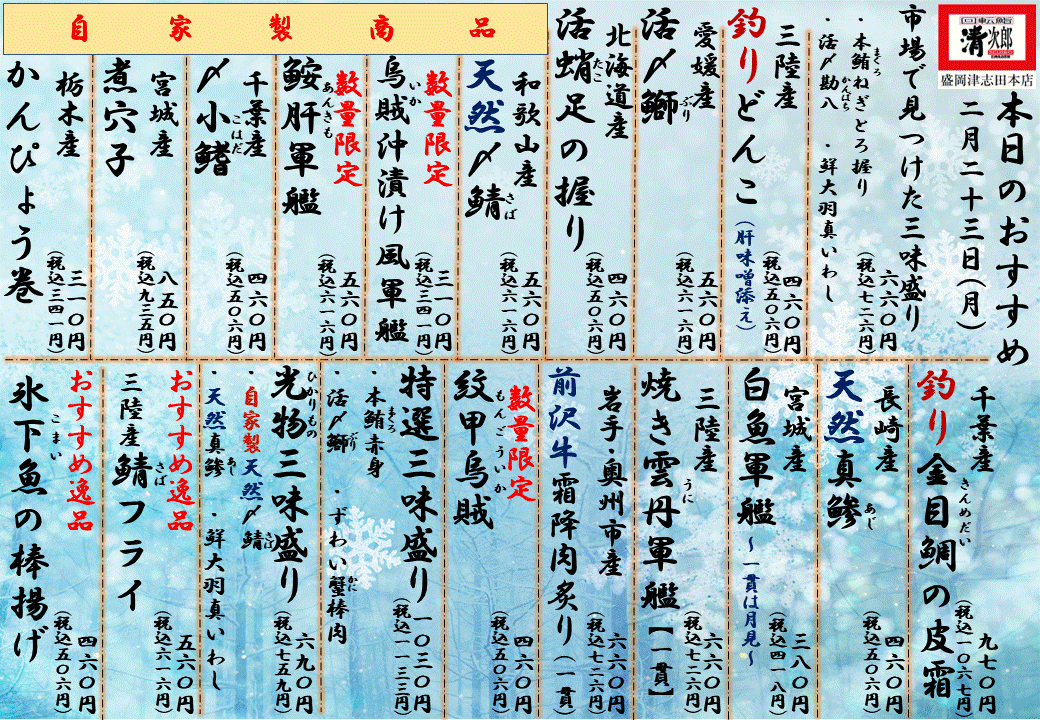 回転鮨
清次郎
盛岡津志田本店
本日のおすすめ
二月二十三日(月)
市場で見つけた三味盛り
六六〇円
(税込七二六円)
・本鮪ねぎとろ握り
まぐろ
・活〆勘八
かんぱち
・鮮大羽真いわし
三陸産
釣りどんこ
(肝味噌添え)
四六〇円
(税込五〇六円)
愛媛産
活〆鰤
ぶり
五六〇円
(税込六一六円)
北海道産
活蛸足の握り
たこ
四六〇円
(税込五〇六円)
自家製商品
和歌山産
天然〆鯖
さば
五六〇円
(税込六一六円)
数量限定
烏賊沖漬け風軍艦
いか
三一〇円
(税込三四一円)
数量限定
鮟肝軍艦
あんきも
五六〇円
(税込六一六円)
千葉産
〆小鰭
こはだ
四六〇円
(税込五〇六円)
宮城産
煮穴子
八五〇円
(税込九三五円)
栃木産
かんぴょう巻
三一〇円
(税込三四一円)
千葉産
釣り金目鯛の皮霜
きんめだい
九七〇円
(税込一〇六七円)
長崎産
天然真鯵
あじ
四六〇円
(税込五〇六円)
宮城産
白魚軍艦
~一貫は月見~
三八〇円
(税込四一八円)
三陸産
焼き雲丹軍艦【一貫】
うに
六六〇円
(税込七二六円)
岩手・奥州市産
前沢牛霜降肉炙り(一貫)
六六〇円
(税込七二六円)
数量限定
紋甲烏賊
もんごういか
四六〇円
(税込五〇六円)
特選三味盛り
一〇三〇円
(税込一一三三円)
・本鮪赤身
まぐろ
・活〆鰤
ぶり
・ずわい蟹棒肉
かに
光物三味盛り
ひかりもの
六九〇円
(税込七五九円)
・自家製天然〆鯖
さば
・天然真鯵
あじ
・鮮大羽真いわし
おすすめ逸品
三陸産鯖フライ
さば
五六〇円
(税込六一六円)
おすすめ逸品
氷下魚の棒揚げ
こまい
四六〇円
(税込五〇六円)